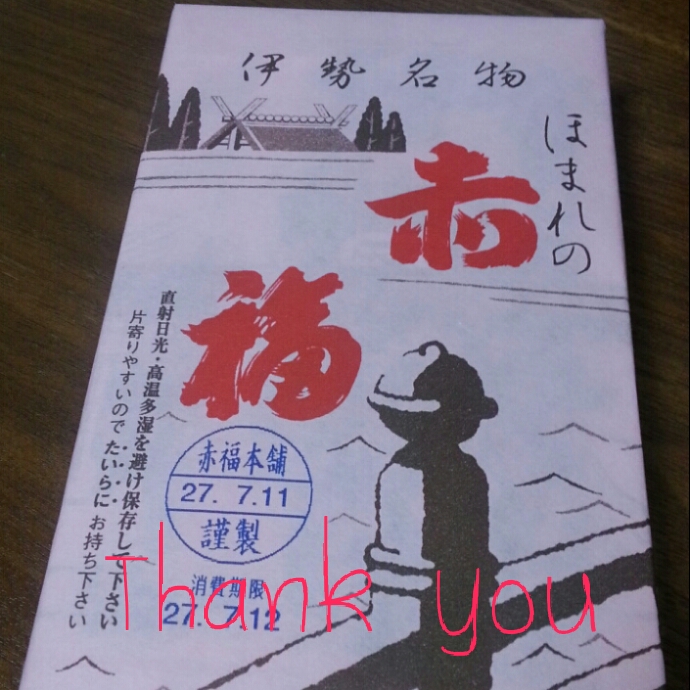 伊勢名物
ほまれの
赤
福
直射日光・高温多湿を避け保存して下さい
片寄りやすいのでたいらにお持ち下さい
赤福本舗
27. 7.11
謹製
消費期限
27. 7.12
Thank you